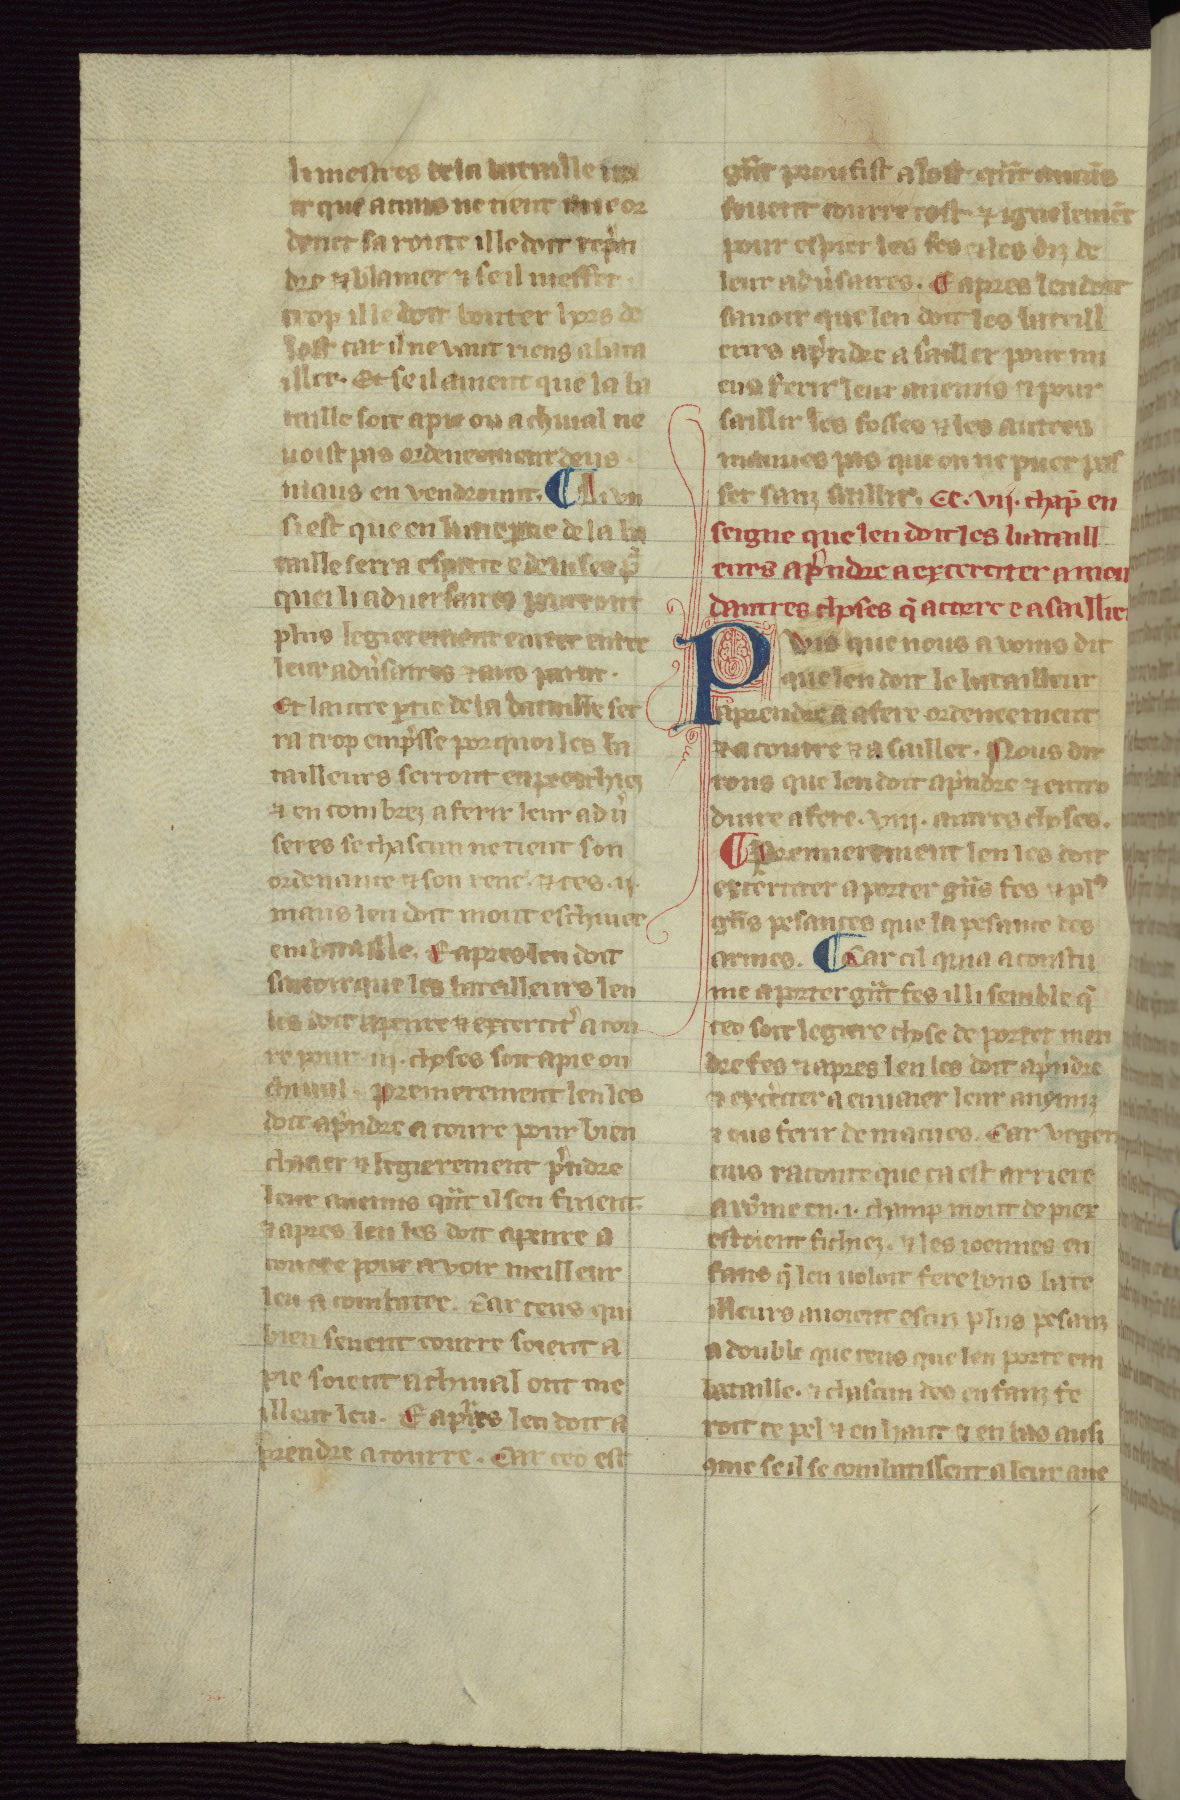 li mestres de la bataille uo
it que aucuns ne tient une or
denet sa route il le doit rep̃n
dre ⁊ blamer ⁊ se il meffet
trop il le doit bouter hors de
lost car il ne vaut riens a bata
iller. Et se il auient que la ba
taille soit a pie ou a chiual ne
uoist pas ordeneement deus
maus en vendroiunt. ¶ Li vn
si est que en lune ptie de la ba
taille serra esparte e deuisee p̃
quei li aduersaires pourront
plus legierement entrer entre
leur adũsaires
Et lautre ptie de la bataille ser
ra trop emp̃sse por quoi les ba
tailleurs serront enpreschiez
⁊ en combrez a ferir leur adũ
seres se chascun ne tient son
ordenance ⁊ son renc. ⁊ ces .ii.
maus len doit mout eschiuer
em bataille. E apres len doit
sauoir que les batailleurs len
les doit apenre ⁊ exercit̃ a cou
re pour .iii. choses soit a pie ou
chiual. Premierement len les
doit ap̃ndre a coure pour bien
chacer ⁊ legierement p̃ndre
leur anemis qũt il sen fuient.
⁊ apres len les doit apenre a
courre pour auoir meilleur
leu a combatre. Car ceus qui
bien seuent courre soient a
pie soient a chiual ont me
illeur leu. E apres len doit a
prendre a courre. Car ceo est
gũt proufist a lost qũt aucũs
seuent courre tost ⁊ ignelemẽt
pour espier les fes ⁊ les diz de
leur adũsaires. E apres len doit
sauoir que len doit les bataill
eurs ap̃ndre a saillir pour mi
eus ferir leur anemis ⁊ pour
saillir les fosses ⁊ les autres
mauues pas que on ne puet pas
ser sanz saillir. Ce .vij. chap̃ en
seigne que len doit les bataill
eurs ap̃ndre a exerciter a mou
dautres choses q̃ a corre e a saillir
Puis que nous avoms dit
que len doit le batailleur
aprendre a a fere ordeneement
⁊ a courre ⁊ a saillir. Nous di
rons que len doit ap̃ndre ⁊ entro
duire a fere .viii. autres choses.
¶ Premierement len les doit
exerciter a porter gũs fes ⁊ plꝰ
gũs pesances que la pesance des
armes. ¶ Car cil qui a acoustu
me a porter gũt fes il li semble q̃
ceo soit legiere chose de porter men
dre fes ⁊ apres len les doit ap̃ndre
⁊ ex̃citer a enuaier leur anemiz
⁊ eus ferir de macues. Car vege
cius raconte que ca est arriere
a rõme en .i. champ mout de piex
estoient fichiez. ⁊ les ioennes en
fans q̃ len uoloit fere bons bata
illeurs auoient escuz plus pesanz
a double que ceus que len porte em
bataille. ⁊ chascun des enfanz fe
roit ce pel ⁊ en haut ⁊ en bas ausi
ꝯme se il se combatissent a leur ane